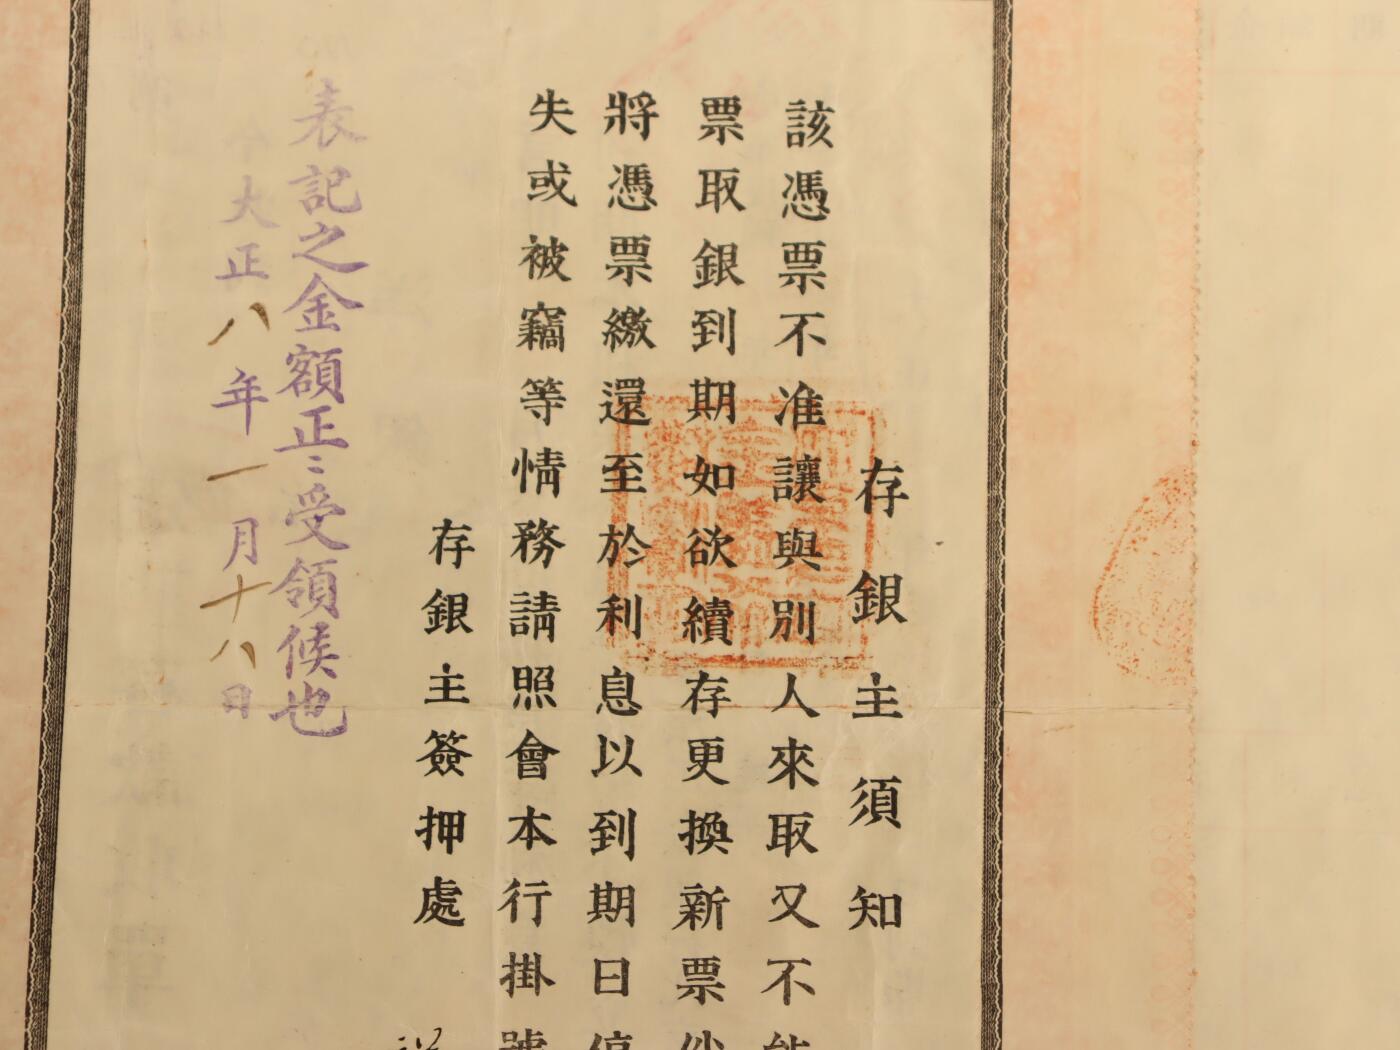 存銀主須知
該憑票不准讓與別人來取又不能
票取銀到期如欲續存更換新票
將憑票繳還至於利息以到期日停
失或被竊等情務請照會本行掛號
存銀主簽押處
表記之金額正ニ受領候也
大正八年一月十八日